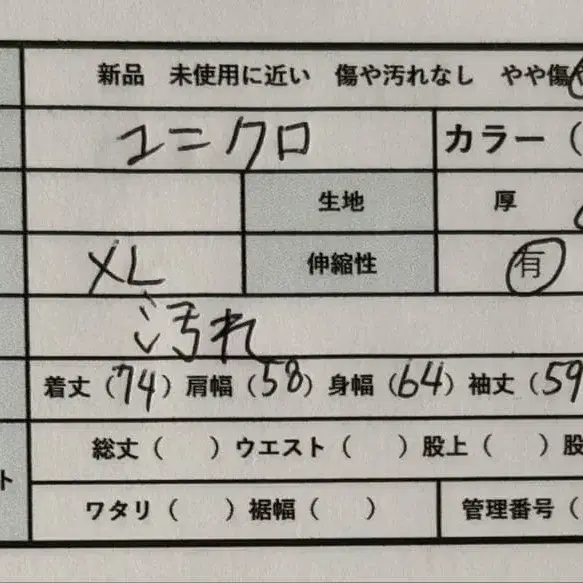 新品 未使用に近い 傷や汚れなし やや傷
ユニクロ カラー（
生地 厚
XL 伸縮性 有
汚れ
着丈（74）肩幅（58）身幅（64）袖丈（59
総丈（ ）ウエスト（ ）股上（ ）股
ト
ワタリ（ ）裾幅（ ） 管理番号（